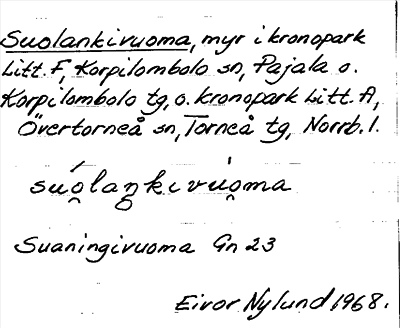 Suolankivuoma, myr i kronopark
Litt. F, Korpilombolo sn, Pajala o.
Korpilombolo tg, o. kronopark Litt. A,
Övertorneå sn, Torneå tg, Norrb. l.
suo̯laŋkivuo̯ma
Suaningivuoma Gn 23
Eivor Nylund 1968.